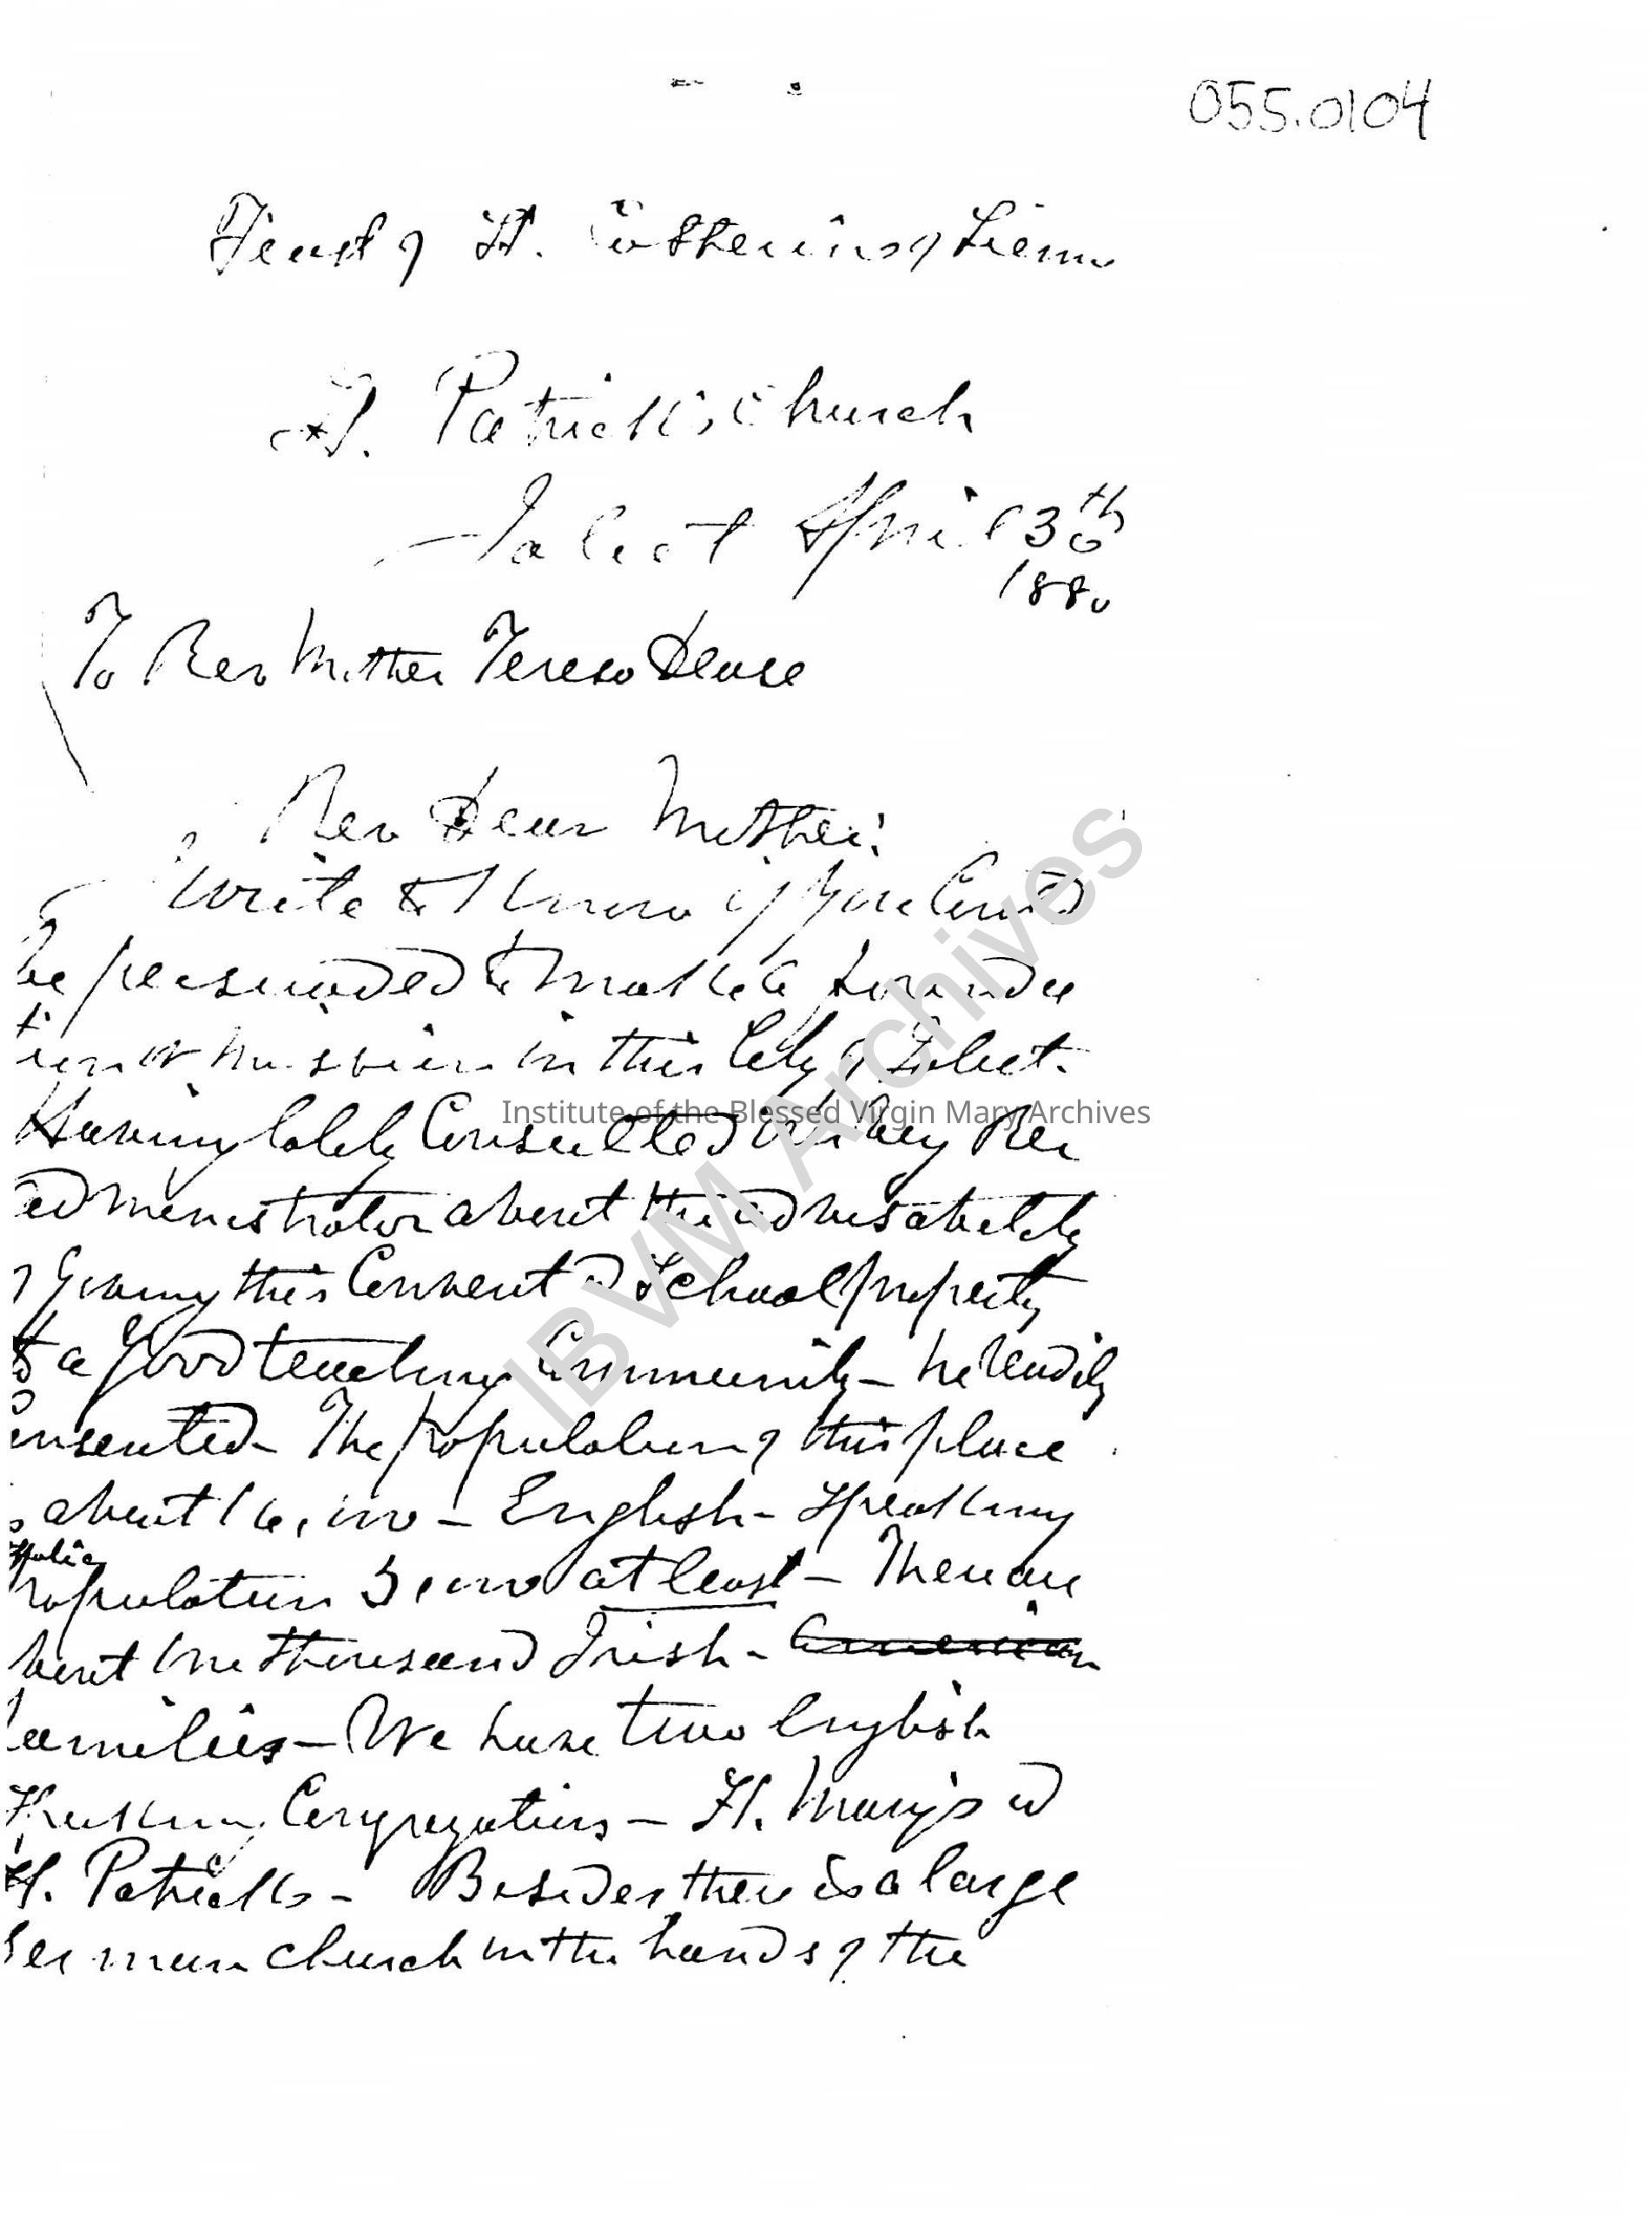 055.0104
Feast of St. Catherine of Siena
St. Patrick's Church
Joliet April 30th
1880
To Rev Mother Teresa Dease
Rev Dear Mother:
Write to know if you could
be persuaded to make a founda
tion or mission in this City of Joliet.
Having lately consulted Very Rev
administrator about the advisability
of giving this Convent & School property
to a good teaching Community – he readily
consented – The population of this place
is about 16,000 – English – speaking
population 5,000 at least – There are
bout one thousand Irish – American
families – We have two English
speaking Congregations – St. Mary's &
St. Patricks – Besides there is a large
German church in the hands of the
Institute of the Blessed Virgin Mary Archives
IBVM Archives